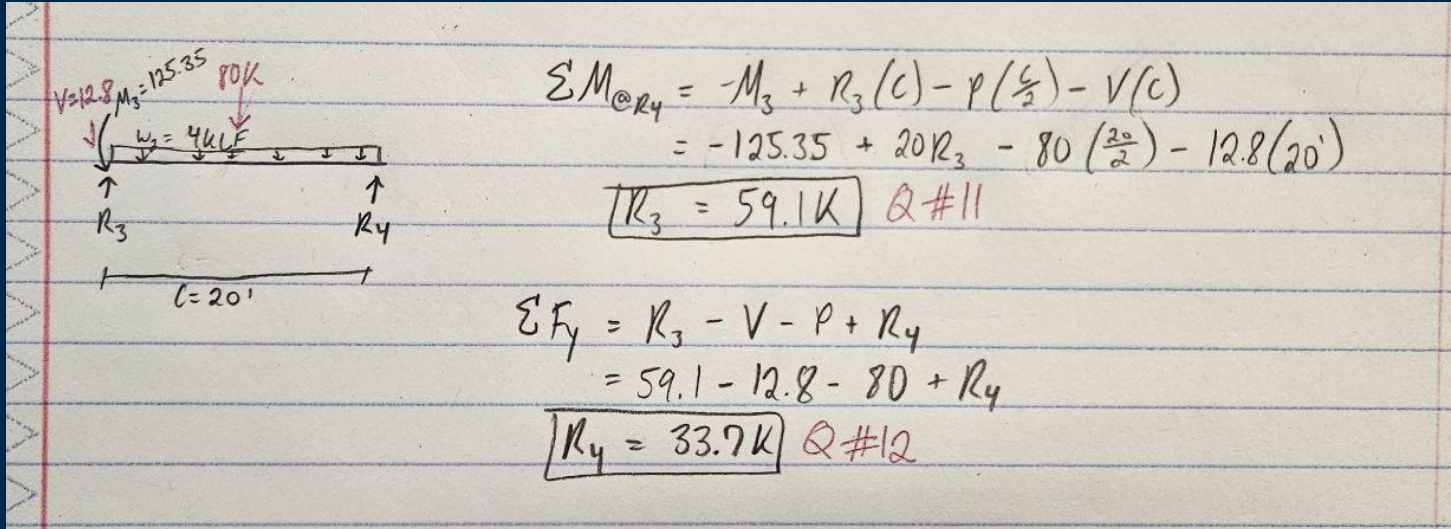 V=12.8 M₃=125.35 80K
w₃ = 4KLF
R₃ R₄
C=20'
ΣM@R₄ = -M₃ + R₃(C) - P(C/2) - V(C)
= -125.35 + 20R₃ - 80(20/2) - 12.8(20')
R₃ = 59.1K Q #11
ΣFy = R₃ - V - P + R₄
= 59.1 - 12.8 - 80 + R₄
R₄ = 33.7K Q #12